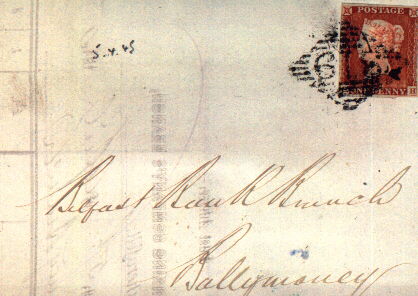 POSTAGE
5.4.45
ONE PENNY H
Belfast Bank Branch
Ballymoney